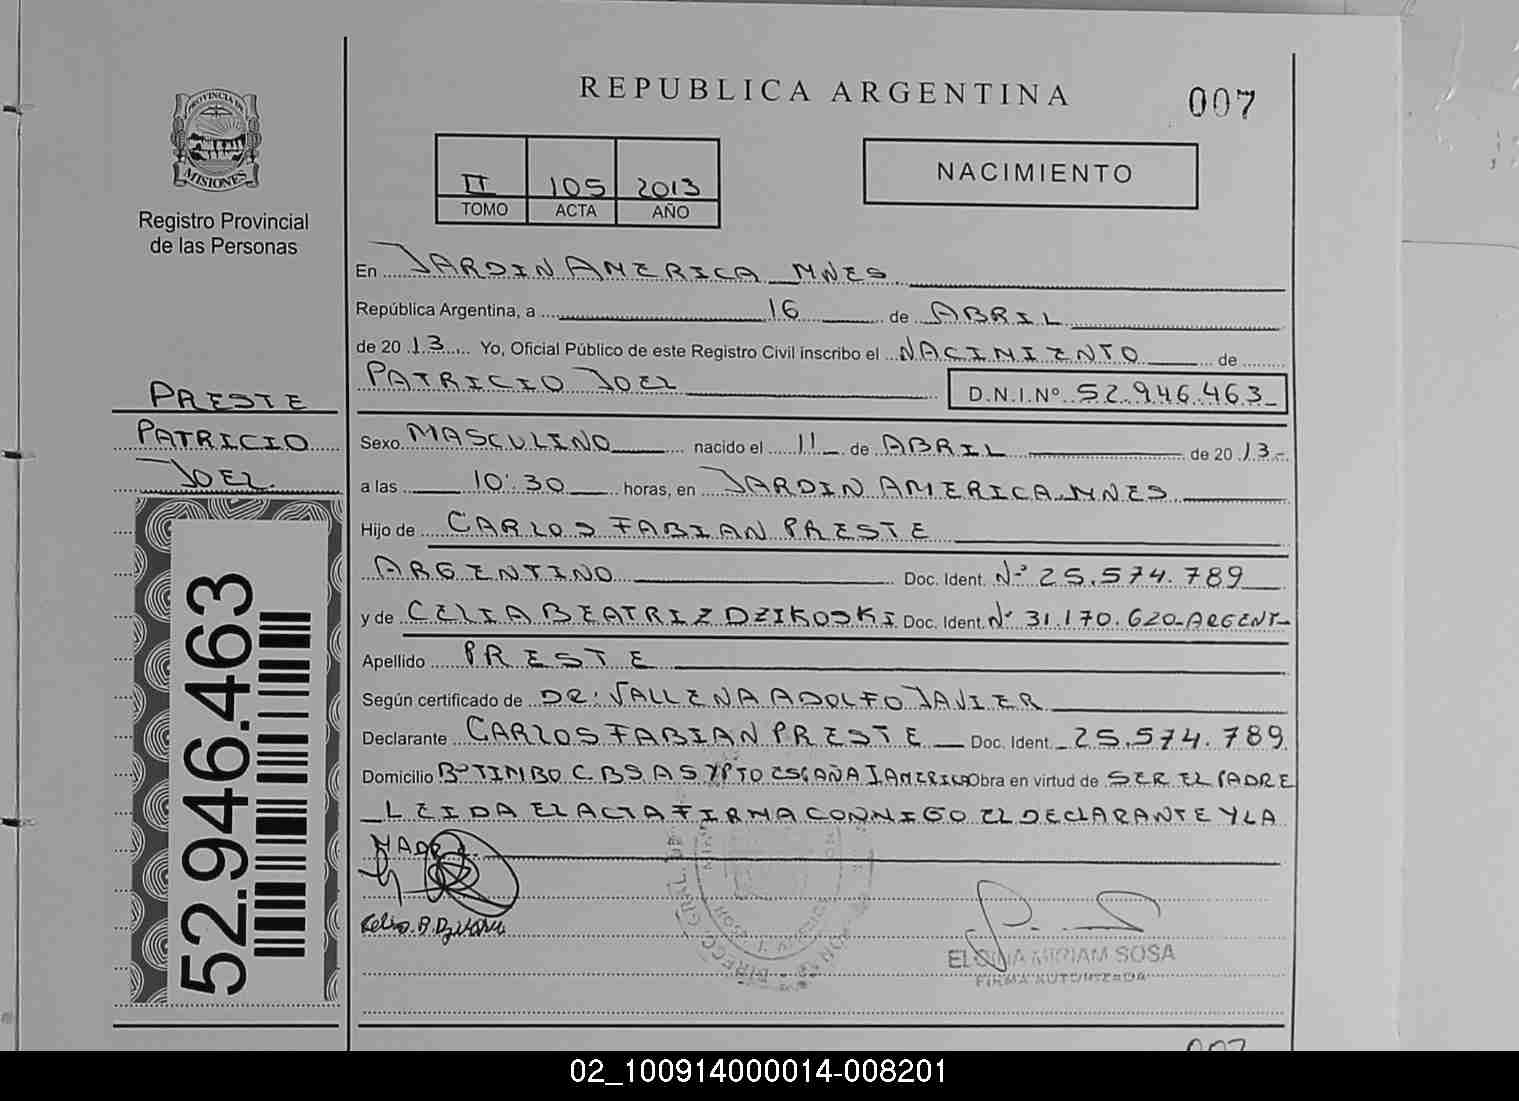 REPUBLICA ARGENTINA
007
PROVINCIA DE
MISIONES
Registro Provincial
de las Personas
II 105 2013
TOMO ACTA AÑO
NACIMIENTO
En JARDIN AMERICA MNES
República Argentina, a 16 de ABRIL
de 2013 Yo, Oficial Público de este Registro Civil inscribo el NACIMIENTO de
PATRICIO JOEL D.N.I.Nº 52.946.463
PRESTE
PATRICIO
JOEL.
52.946.463
Sexo MASCULINO nacido el 11 de ABRIL de 2013
a las 10:30 horas, en JARDIN AMERICA MNES
Hijo de CARLOS FABIAN PRESTE
ARGENTINO Doc. Ident. Nº 25.574.789
y de CELIA BEATRIZ DZIKOSKI Doc. Ident. Nº 31.170.620-ARGENT-
Apellido PRESTE
Según certificado de DR: VALLENA ADOLFO JAVIER
Declarante CARLOS FABIAN PRESTE Doc. Ident. 25.574.789
Domicilio Bº TIMBO C. BS AS Y PTO ESPAÑA J AMERICA Obra en virtud de SER EL PADRE
LEIDA EL ACTA FIRMA CONMIGO EL DECLARANTE Y LA
MADRE.
ELSINA MIRIAM SOSA
FIRMA AUTORIZADA
02_100914000014-008201